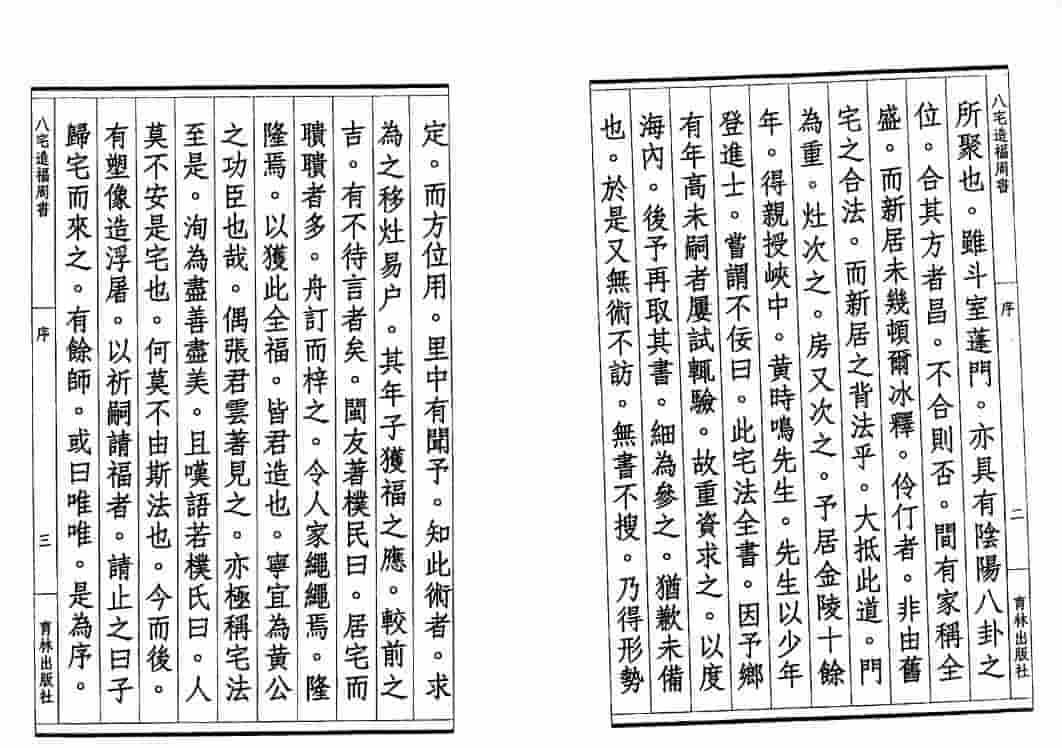 八宅造福周書 序 二 育林出版社
所聚也。雖斗室蓬門。亦具有陰陽八卦之
位。合其方者昌。不合則否。間有家稱全
盛。而新居未幾頓爾冰釋。伶仃者。非由舊
宅之合法。而新居之背法乎。大抵此道。門
為重。灶次之。房又次之。予居金陵十餘
年。得親授峽中。黃時鳴先生。先生以少年
登進士。嘗謂不佞曰。此宅法全書。因予鄉
有年高未嗣者屢試輒驗。故重資求之。以度
海內。後予再取其書。細為參之。猶歉未備
也。於是又無術不訪。無書不搜。乃得形勢
定。而方位用。里中有聞予。知此術者。求
為之移灶易户。其年子獲福之應。較前之
吉。有不待言者矣。閩友著樸民曰。居宅而
聵聵者多。舟訂而梓之。令人家繩繩焉。隆
隆焉。以獲此全福。皆君造也。寧宜為黃公
之功臣也哉。偶張君雲著見之。亦極稱宅法
至是。洵為盡善盡美。且嘆語若樸氏曰。人
莫不安是宅也。何莫不由斯法也。今而後。
有塑像造浮屠。以祈嗣請福者。請止之曰子
歸宅而來之。有餘師。或曰唯唯。是為序。
八宅造福周書 序 三 育林出版社